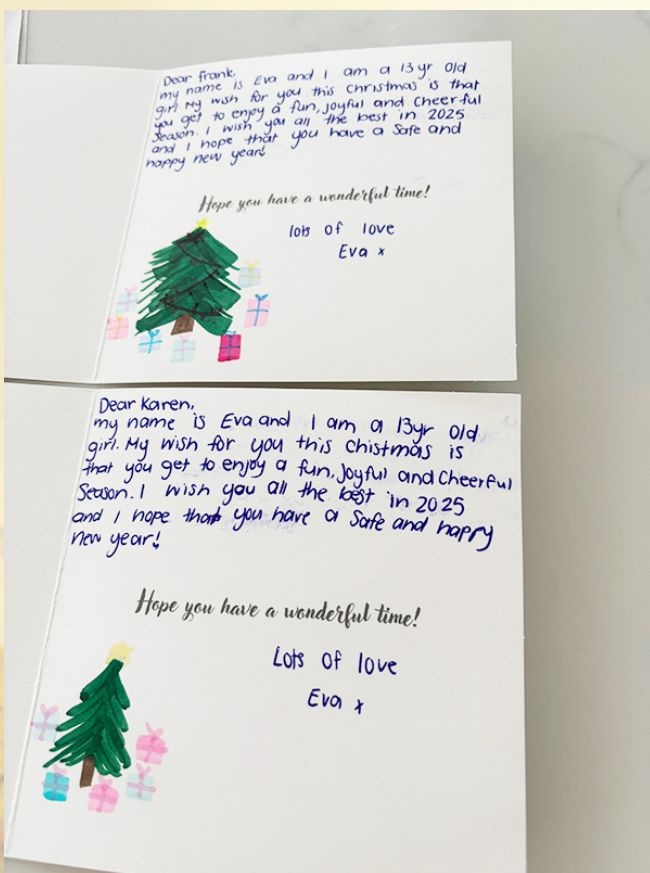 Dear frank,
my name is Eva and I am a 13 yr old
girl. My wish for you this christmas is that
you get to enjoy a fun, joyful and cheerful
season. I wish you all the best in 2025
and I hope that you have a safe and
happy new year!
Hope you have a wonderful time!
lots of love
Eva x
Dear Karen,
my name is Eva and I am a 13yr old
girl. My wish for you this chistmas is
that you get to enjoy a fun, joyful and cheerful
season. I wish you all the best in 2025
and I hope that you have a safe and happy
new year!
Hope you have a wonderful time!
Lots of love
Eva x